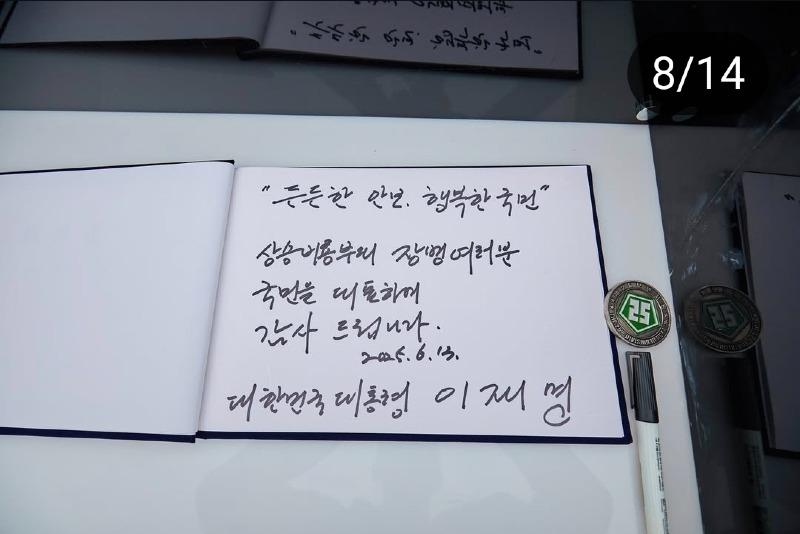 8/14
"든든한 안보. 행복한 국민"
상승비룡부대 장병여러분
국민을 대표하여
감사 드립니다.
2025. 6. 13.
대한민국 대통령 이재명